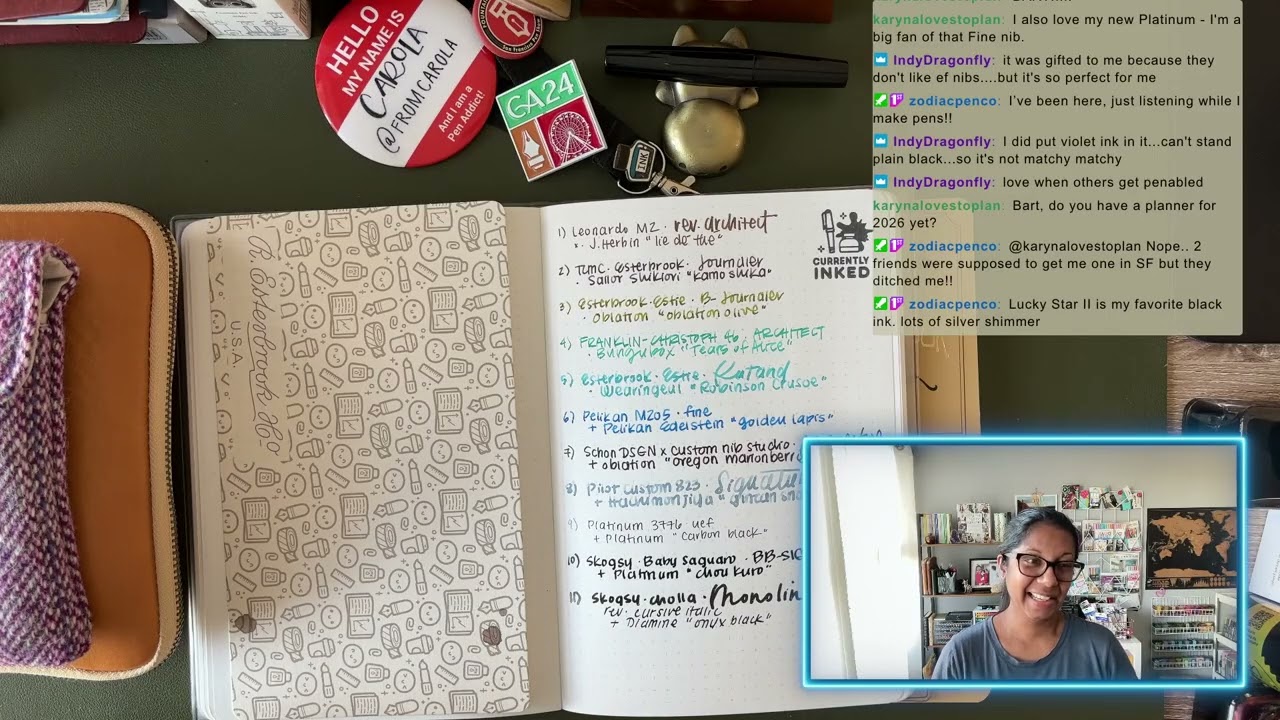 HELLO
MY NAME IS
CAROLA
@FROMCAROLA
And I am a
Pen Addict!
CA24
INK
The Esterbrook Co
U.S.A.
1) Leonardo MZ · rev. architect
· J. Herbin "lie de thé"
2) TWC · Esterbrook · Journaler
· Sailor Shikiori "kamoshika"
3) Esterbrook · Estie · B-Journaler
· Oblation "oblation olive"
4) FRANKLIN-CHRISTOPH 46 · ARCHITECT
· Bungubox "Tears of Alice"
5) Esterbrook · Estie ·
· Wearingeul "Robinson Crusoe"
6) Pelikan M205 · fine
+ Pelikan Edelstein "golden lapis"
7) Schon DSGN x custom nib studio ·
+ oblation "oregon marionberr
8) Pilot Custom 823 · Signatu
9) Platinum 3776 uef
+ Platinum "Carbon black"
10) Skogsy · Baby saguaro · BB-SIG
+ Platinum "chou kuro"
11) Skogsy · cholla · Monolin
rev. cursive italic
+ Diamine "onyx black"
CURRENTLY
INKED
karynalovestoplan: I also love my new Platinum - I'm a
big fan of that Fine nib.
IndyDragonfly: it was gifted to me because they
don't like ef nibs....but it's so perfect for me
zodiacpenco: I've been here, just listening while I
make pens!!
IndyDragonfly: I did put violet ink in it...can't stand
plain black...so it's not matchy matchy
IndyDragonfly: love when others get penabled
karynalovestoplan: Bart, do you have a planner for
2026 yet?
zodiacpenco: @karynalovestoplan Nope.. 2
friends were supposed to get me one in SF but they
ditched me!!
zodiacpenco: Lucky Star II is my favorite black
ink. lots of silver shimmer